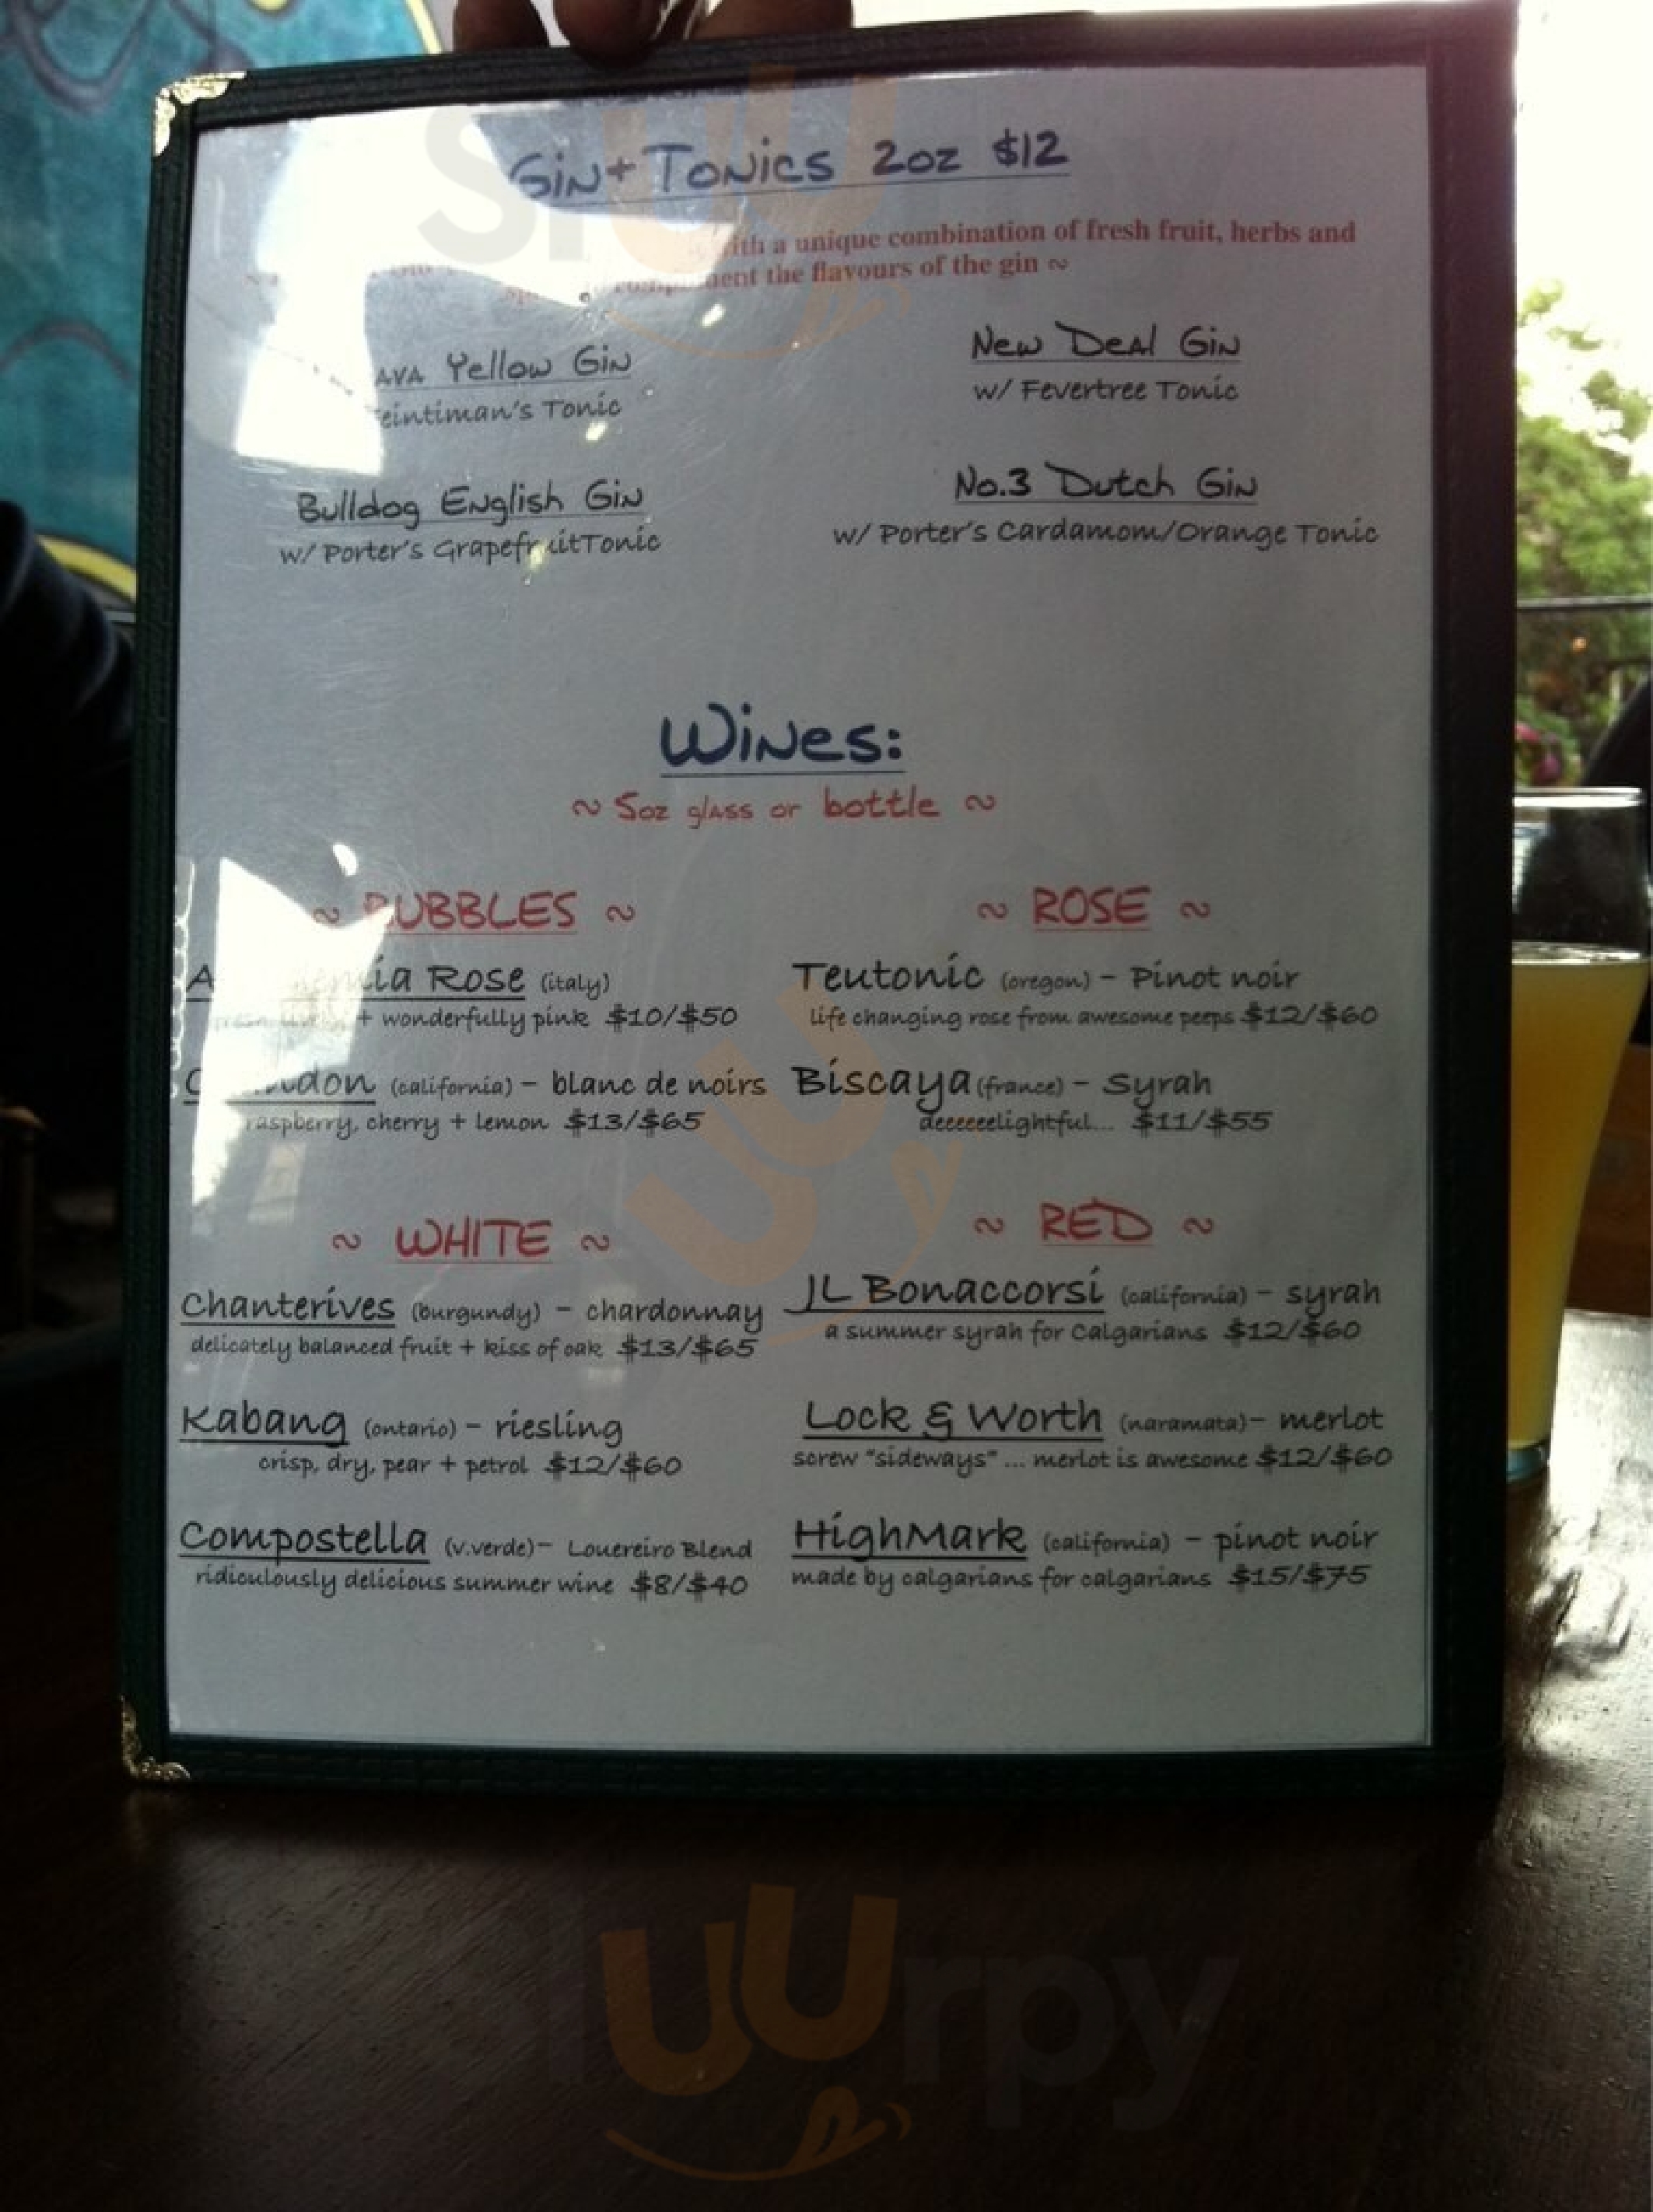 Gin + Tonics 2oz $12
with a unique combination of fresh fruit, herbs and
the flavours of the gin ~
Yellow Gin
Tonic
New Deal Gin
w/ Fevertree Tonic
Bulldog English Gin
w/ Porter's GrapefruitTonic
No.3 Dutch Gin
w/ Porter's Cardamom/Orange Tonic
Wines:
~ 5oz glass or bottle ~
~ BUBBLES ~
Rose (italy)
+ wonderfully pink $10/$50
(california) - blanc de noirs
raspberry, cherry + lemon $13/$65
~ ROSE ~
Teutonic (oregon) - Pinot noir
life changing rose from awesome peeps $12/$60
Biscaya (france) - Syrah
deeeeeelightful... $11/$55
~ WHITE ~
Chanterives (burgundy) - chardonnay
delicately balanced fruit + kiss of oak $13/$65
Kabang (ontario) - riesling
crisp, dry, pear + petrol $12/$60
Compostella (v.verde) - Louereiro Blend
ridiculously delicious summer wine $8/$40
~ RED ~
JL Bonaccorsi (california) - syrah
a summer syrah for Calgarians $12/$60
Lock & Worth (naramata) - merlot
screw "sideways" ... merlot is awesome $12/$60
HighMark (california) - pinot noir
made by calgarians for calgarians $15/$75
sluurpy